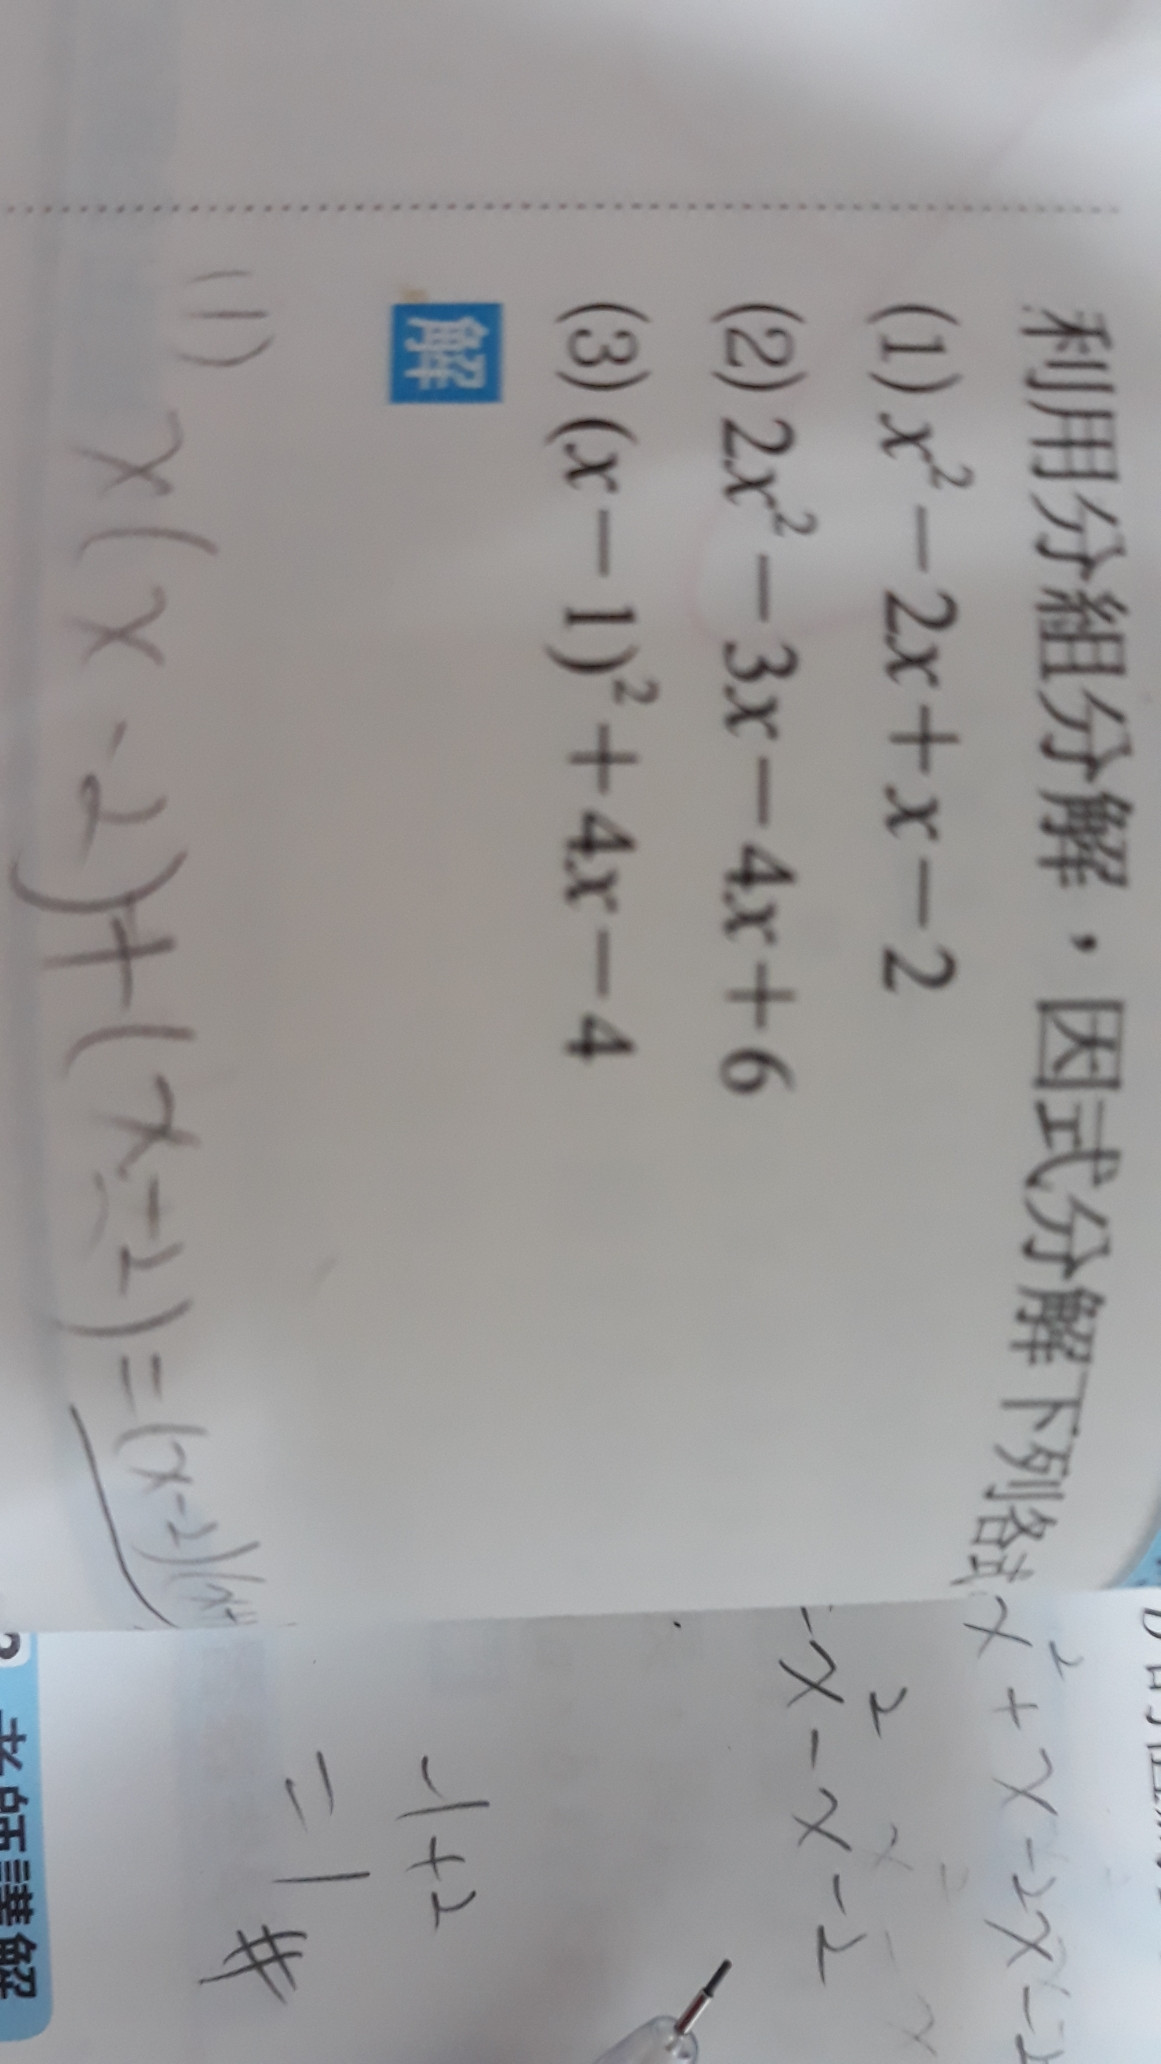 利用分組分解，因式分解下列各式
(1) x² − 2x + x − 2
(2) 2x² − 3x − 4x + 6
(3) (x − 1)² + 4x − 4
解
(1) x(x-2)+(x-2)=(x-2)(x+
x²+x-2x-2
x²-x-2
-1+2
=1
#
老師講解